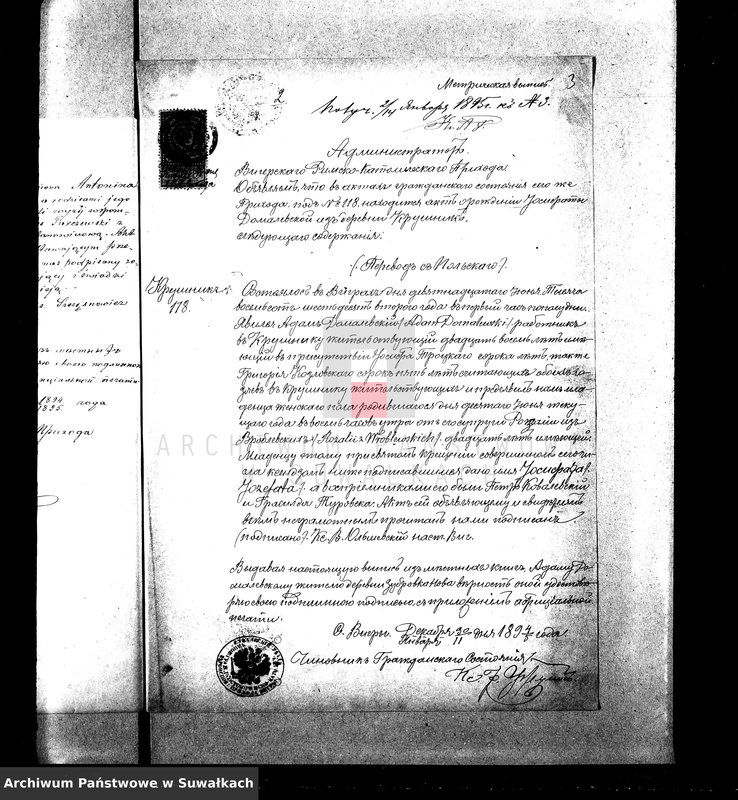 Метрическая выпись 3
2
Получ. 2/14 Января 1895 г. къ А 3.
Администраторъ
Вигерскаго Римско-Католическаго Прихода
Объявляетъ, что въ актахъ гражданскаго состоянія сего же
Прихода подъ № 118 находится актъ о рожденіи Іосифаты
Домалевской изъ деревни Крушникъ,
слѣдующаго содержанія:
(Переводъ съ Польскаго).
Крушникъ
118.
Состоялось въ Виграхъ дня девятнадцатаго Іюня Тысяча
восемьсотъ шестьдесятъ второго года въ первый часъ пополудни.
Явился Адамъ Домалевскій (Adam Domalewski) работникъ
въ Крушнику жительствующій двадцать восемь лѣтъ имѣ-
ющій въ присутствіи Іосифа Троцкаго сорока лѣтъ, также
Григорія Козловскаго сорокъ пять лѣтъ считающихъ обоихъ хо-
зяевъ въ Крушнику жительствующихъ и предъявилъ намъ мла-
денца женскаго пола родившагося дня десятаго Іюня теку-
щаго года въ восемь часовъ утра отъ его супруги Розаліи изъ
Врублевскихъ (Rozalii z Wróblewskich) двадцать лѣтъ имѣющей.
Младенцу этому при святомъ крещеніи совершенномъ сего чи-
сла ксендзомъ нижеподписавшимся дано имя Іосифата (
Jozefata) а воспріемниками его были Петръ Ковалевскій
и Туровска. Актъ сей объявляющему и свидѣтелямъ
всѣмъ неграмотнымъ прочитанъ нами подписанъ.
(подписано). Кс. В. наст. Виг.
Выдавая настоящую выпись изъ мѣстныхъ книгъ, Адаму До-
малевскому жителю деревни Зубровка Нова вѣрность оной удостовѣ-
ряю своею подлинною подписью съ приложеніемъ оффиціальной
печати.
С. Вигры. Декабря 30 / Января 11 дня 1894/5 года.
Чиновникъ Гражданскаго Состоянія
Кс.
Antonina
a rodzicami jego
z
podpisany zo-
i świadki
Szczęsnowicz
своею подлинною
оффиціальной печати
1894 года
1895
Прихода
ARCH
Archiwum Państwowe w Suwałkach